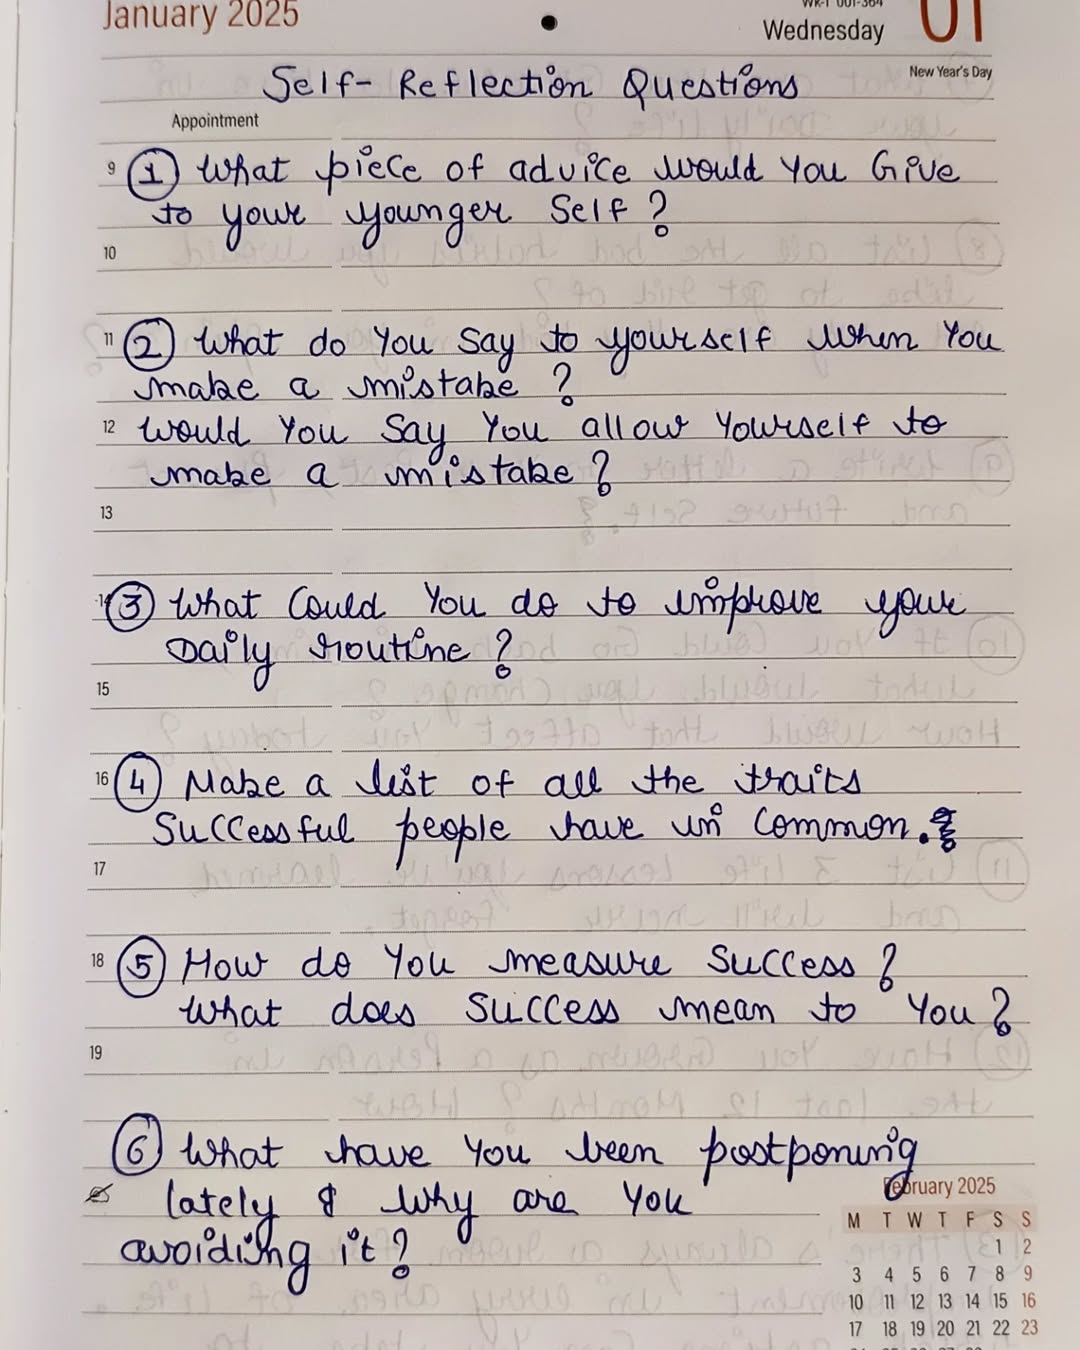 January 2025
WK-1 001-364
Wednesday
01
New Year's Day
Self-Reflection Questions
Appointment
9 1 What piece of advice would You Give
to your younger Self ?
10
11 2 What do You Say to yourself When You
make a mistake ?
12 Would You Say You allow Yourself to
make a mistake?
13
14 3 What Could You do to improve your
Daily routine ?
15
16 4 Make a list of all the traits
Successful people have in Common.
17
18 5 How do You measure Success ?
What does Success mean to You ?
19
6 What have You been postponing
lately & Why are You
avoiding it ?
February 2025
M T W T F S S
1 2
3 4 5 6 7 8 9
10 11 12 13 14 15 16
17 18 19 20 21 22 23